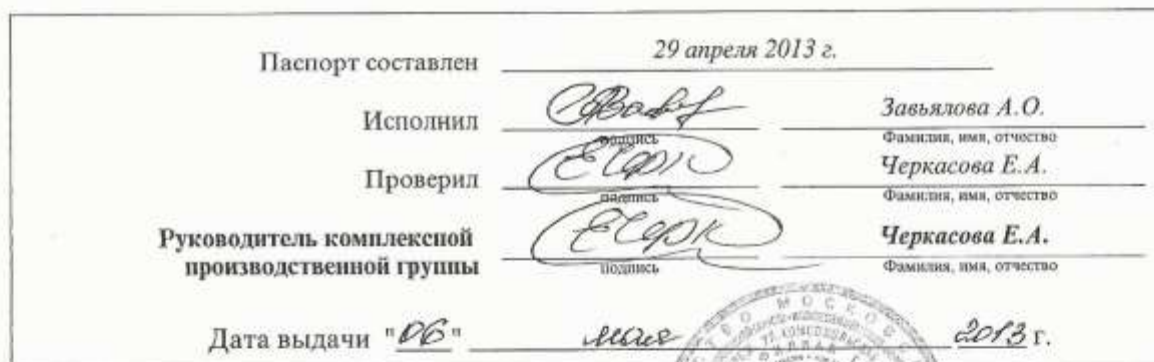 Паспорт составлен 29 апреля 2013 г.
Исполнил Завьялова А.О.
подпись Фамилия, имя, отчество
Проверил ЕЧерк Черкасова Е.А.
подпись Фамилия, имя, отчество
Руководитель комплексной
производственной группы ЕЧерк Черкасова Е.А.
подпись Фамилия, имя, отчество
Дата выдачи "06" мая 2013 г.